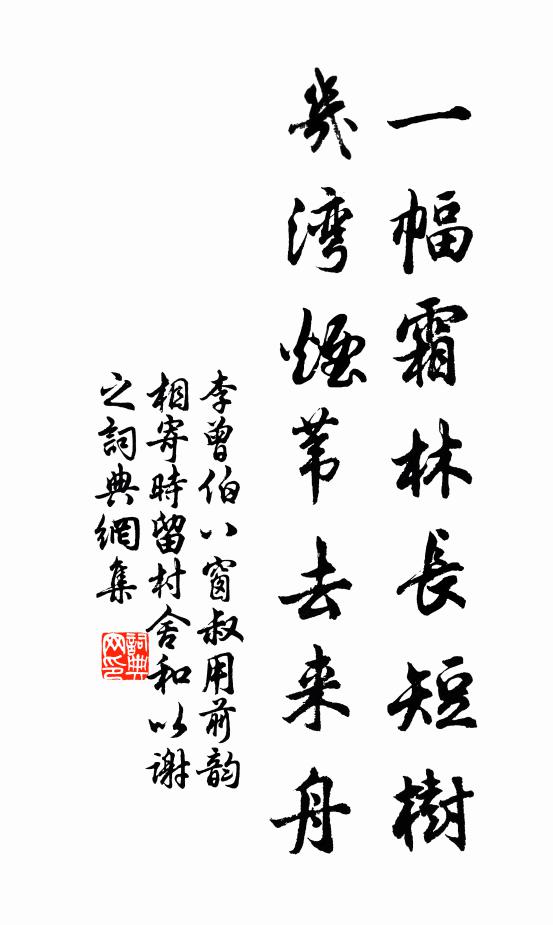 一幅霜林長短樹
幾湾煙苇去来舟
李曾伯八窗叔用前韵
相寄時留村舍和以谢
之詞典網集
詞典网印